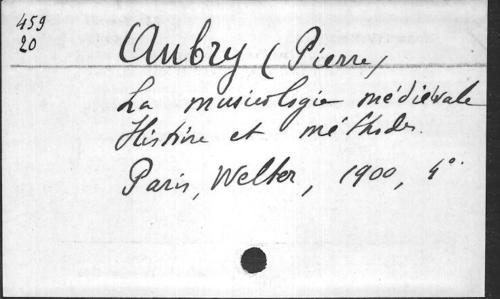 459
20
Aubry (Pierre)
La musicologie médiévale
Histoire et méthodes.
Paris, Welter, 1900, 4°.